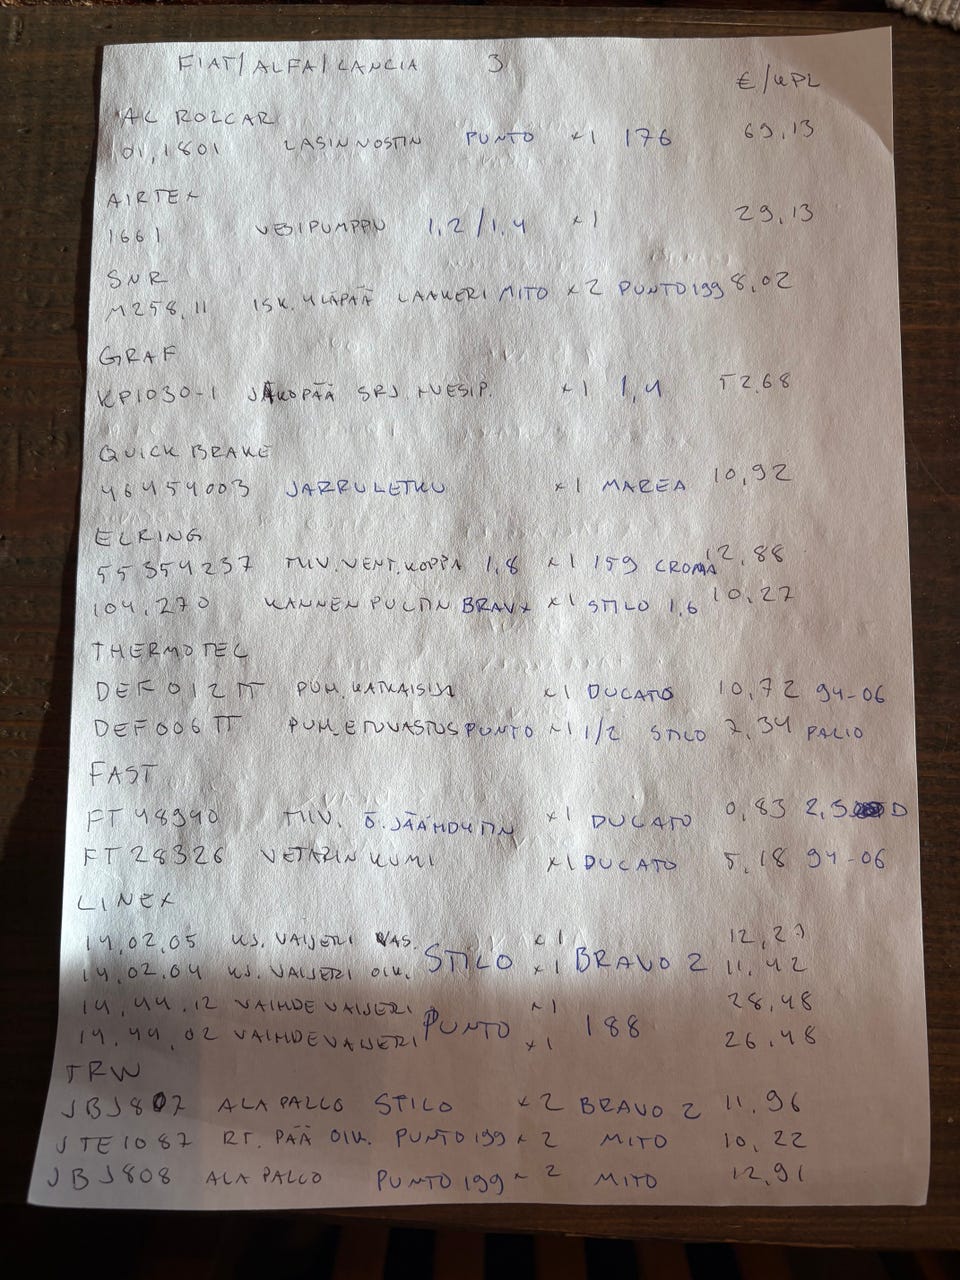 FIAT/ALFA/LANCIA 3 €/KPL
AC ROLCAR
01,1801 LASINNOSTIN PUNTO ×1 176 69,13
AIRTEX
1661 VESIPUMPPU 1,2/1,4 ×1 29,13
SNR
M258,11 ISK. YLÄPÄÄ LAAKERI MITO ×2 PUNTO199 8,02
GRAF
KP1030-1 JAKOPÄÄ SRJ +VESIP. ×1 1,4 52,68
QUICK BRAKE
46454003 JARRULETKU ×1 MAREA 10,92
ELRING
55354237 TIIV. VENT. KOPPA 1,8 ×1 159 CROMA 12,88
104,270 KANNEN PULTIN BRAVX ×1 STILO 1,6 10,27
THERMOTEC
DEF012TT PUH. KATKAISIJA ×1 DUCATO 10,72 94-06
DEF006TT PUH. ETUVASTUS PUNTO ×1 1/2 STILO 7,34 PALIO
FAST
FT48940 TIIV. Ö. JÄÄHDYTIN ×1 DUCATO 0,83 2,5 D
FT28326 VETARIN KUMI ×1 DUCATO 5,18 94-06
LINEX
14,02,05 KJ. VAIJERI VAS. ×1
14,02,04 KJ. VAIJERI OIK. STILO ×1 BRAVO 2 11,42
14,44,12 VAIHDEVAIJERI ×1 28,48
14,44,02 VAIHDEVAIJERI PUNTO ×1 188 26,48
TRW
JBJ807 ALAPALLO STILO ×2 BRAVO 2 11,96
JTE1087 RT. PÄÄ OIK. PUNTO199 ×2 MITO 10,22
JBJ808 ALAPALLO PUNTO199 ×2 MITO 12,91